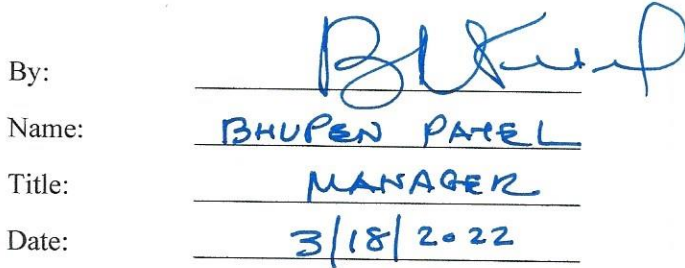 By:
Name: BHUPEN PATEL
Title: MANAGER
Date: 3/18/2022